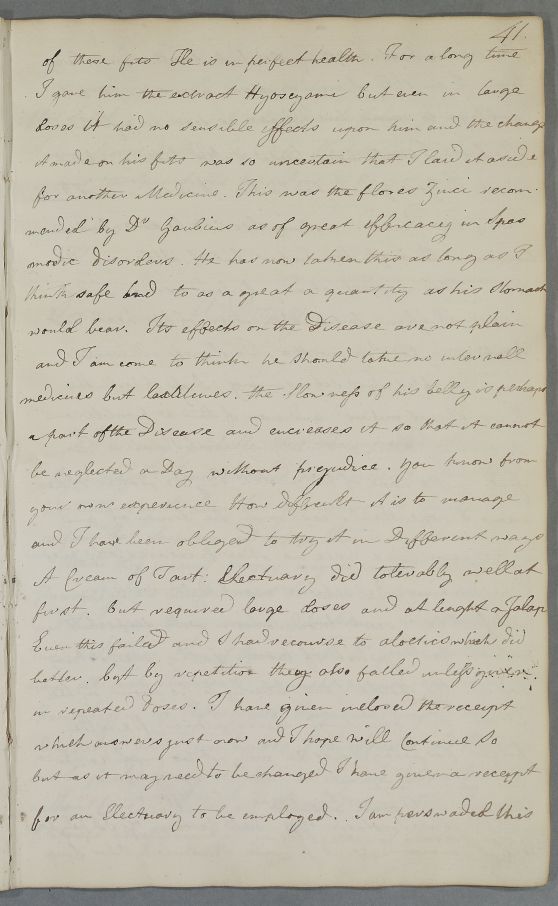 41.
of these fits He is in perfect health. For a long time
I gave him the extract Hyoscyami but even in large
doses it had no sensible effects upon him and the change
it made on his fits was so uncertain that I laid it aside
for another Medicine. This was the flores Zinci recom-
mended by Dr Gaubius as of great effercacey in Spas
modic disorders. He has now taken this as long as I
think safe and to as a great a quantity as his Stomach
would bear. Its effects on the Disease are not plain
and I am come to think he should take no internall
medicines but laxitives. the Slowness of his belly is perhaps
a part of the Disease and encreases it so that it cannot
be neglected a Day without prejudice. you know from
your own experience How difficult it is to manage
and I have been obliged to try it in Different ways
A Cream of Tart: Electuary did tolerably well at
first. but required large doses and at lenght a Jalap
Even this failed and I had recourse to aloetics which did
better. but by repetition they also failed unless given
in repeated doses. I have given inclosed the receipt
which answers just now and I hope will Continue So
but as it may need to be changed I have given a receipt
for an Electuary to be employed. I am perswaded this